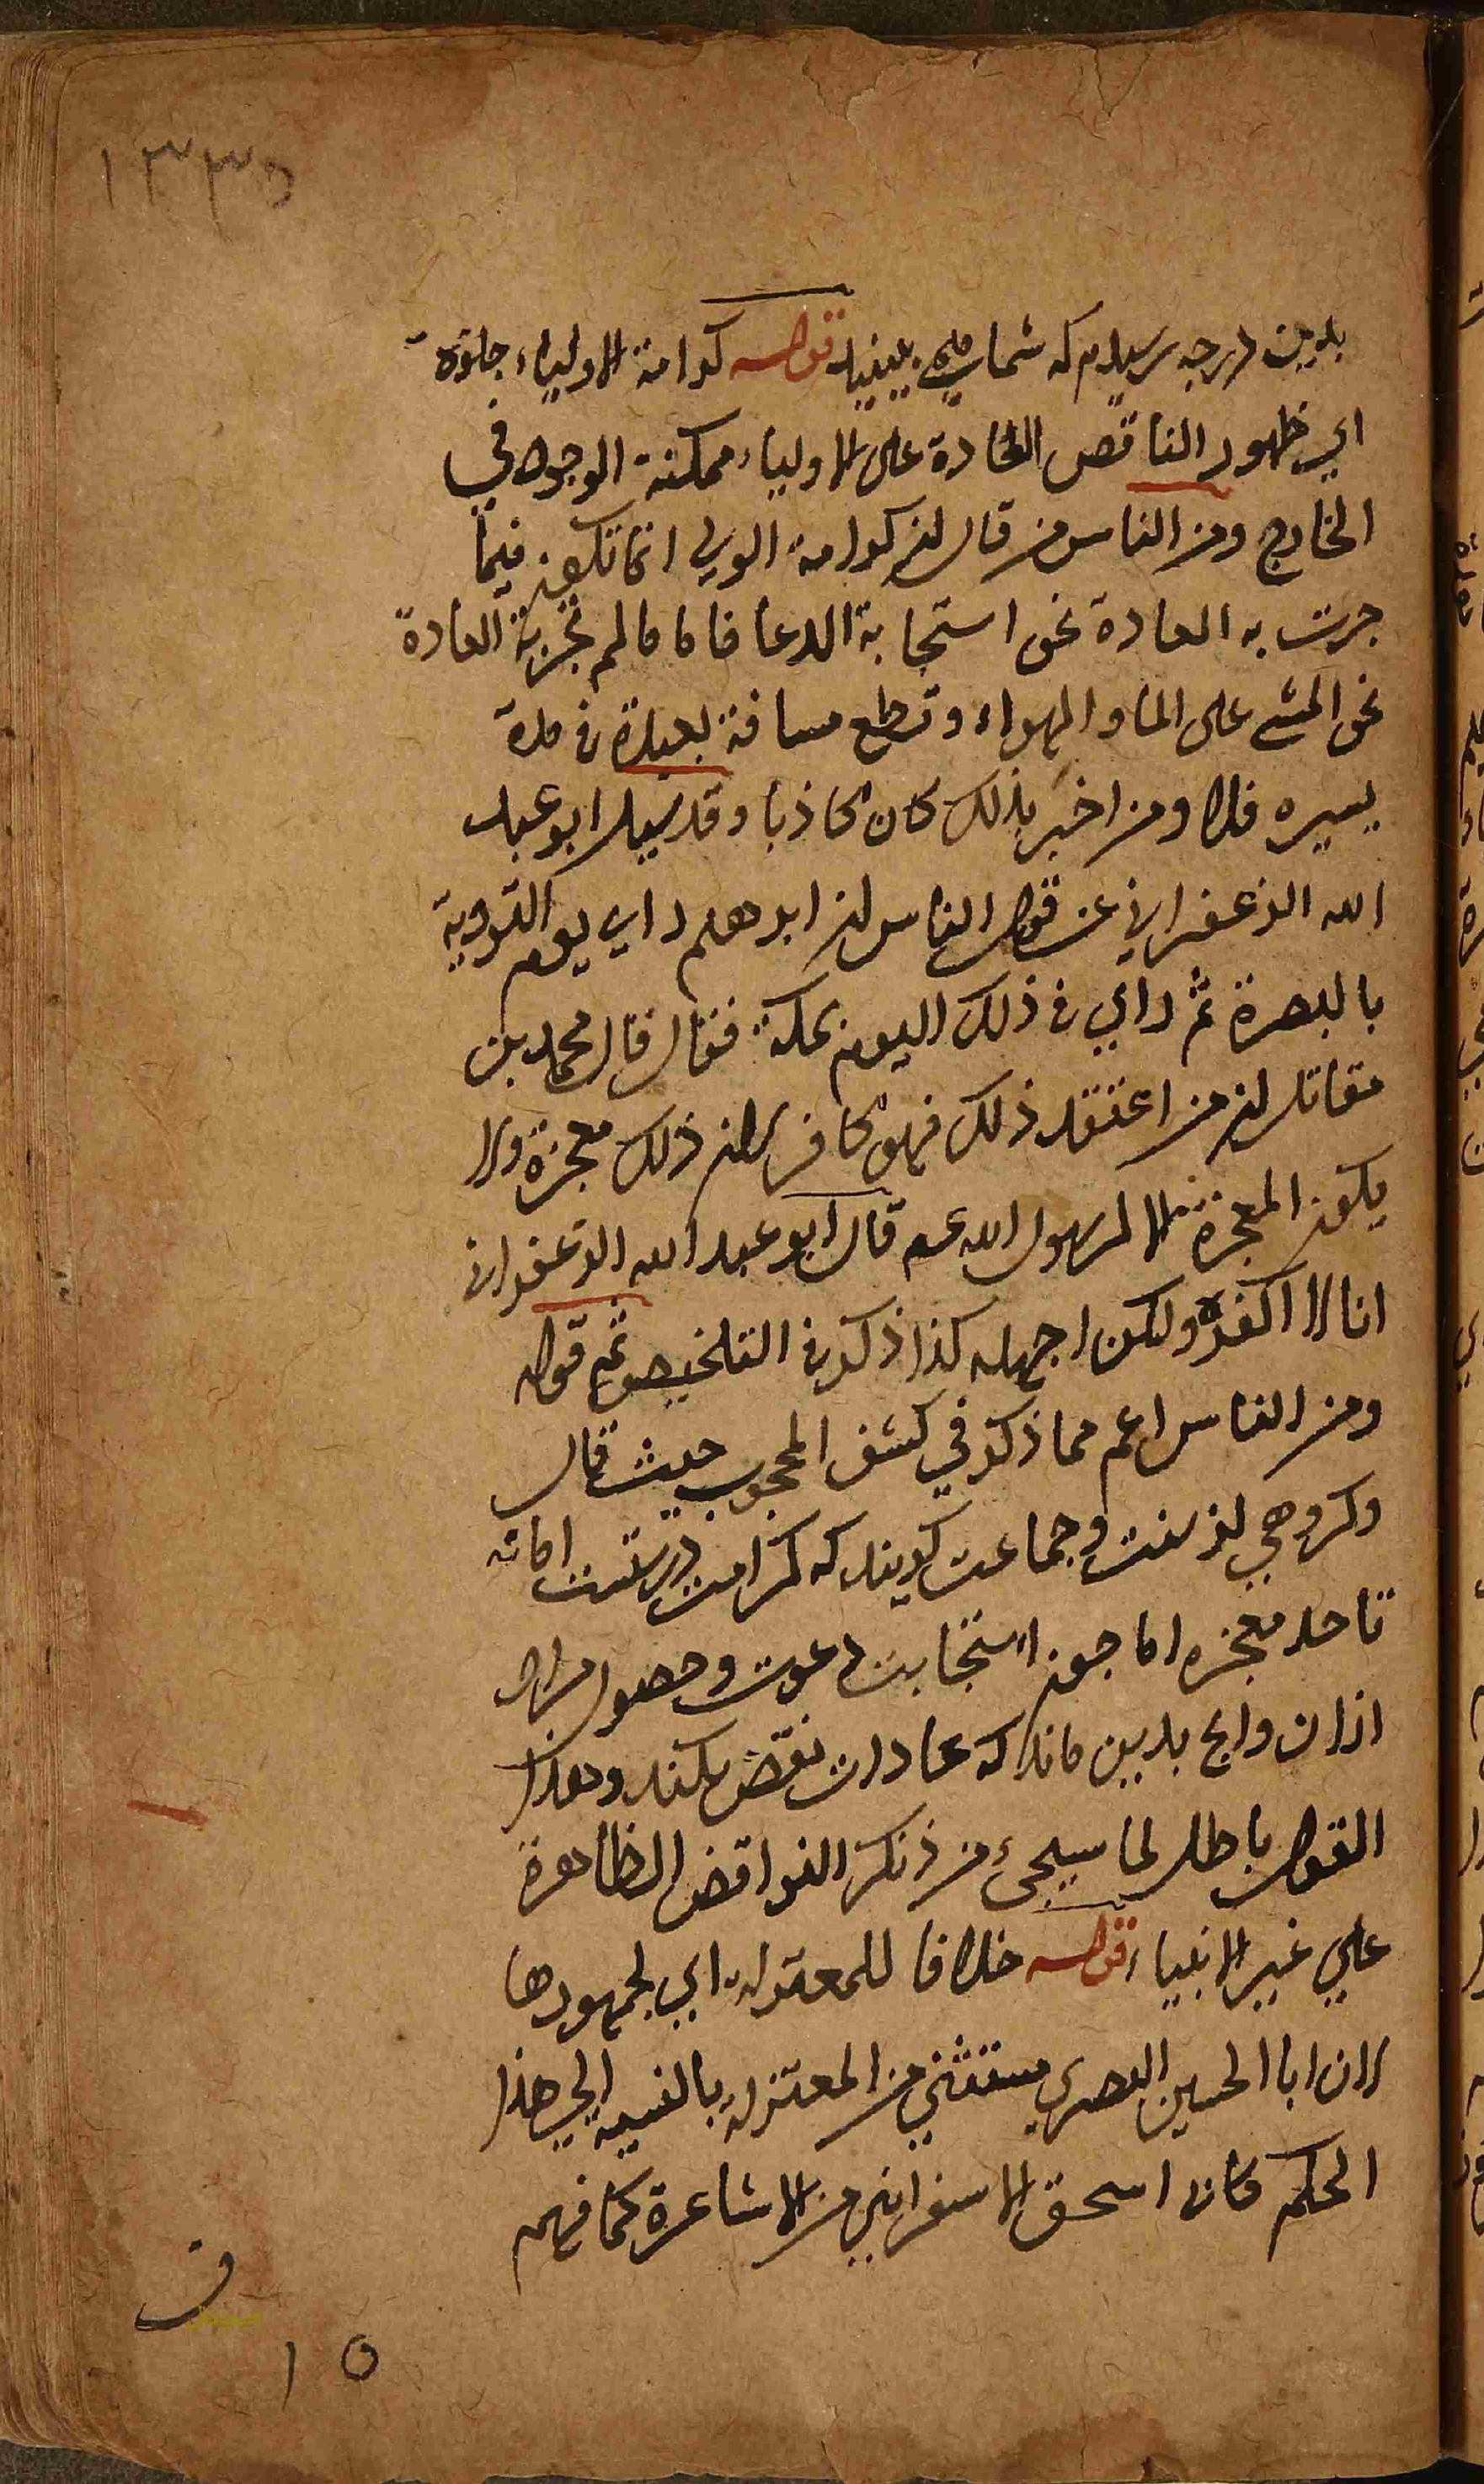 ١٣٣٥
بدین درجه رسیدم که شما می بینید قوله كرامة الاولياء جائزة
اي ظهور الناقص العادة على الاولياء ممكنة الوجود في
الخارج ومن الناس من قال ان كرامة الولي انما تكون فيما
جرت به العادة نحو استجابة الدعا فاما ما لم تجر به العادة
نحو المشي على الما والهواء وقطع مسافة بعيدة في مدة
يسيره فلا ومن اخبر بذلك كان كاذبا وقد سيل ابو عبد
الله الزعفراني عن قول الناس ان ابرهيم راي يوم التروية
بالبصرة ثم راي في ذلك اليوم بمكة فقال قال محمد بن
مقاتل ان من اعتقد ذلك فهو كافر لان ذلك معجزة ولا
يكون المعجزة الا لرسول الله عم قال ابو عبد الله الزعفراني
انا لا اكفره ولكن اجهله كذا ذكر في التلخيص ثم قوله
ومن الناس اعم مما ذكر في كشف المحجوب حيث قال
وكروهي از سنت وجماعت کویند که کرامت درستست اما نه
تا حد معجزه اما جون استجابت دعوت وحصول مراد
ازان وانج بدین ماند که عادات نقض بکند وهذا
القول باطل لما سيجيء من ذكر النواقض الظاهرة
علي غير الانبياء قوله خلافا للمعتزلة اي لجمهورها
لان ابا الحسين البصري مستثني من المعتزلة بالنسبة الي هذا
الحكم كان اسحق الاسفرايني من الاشاعرة كما فهم
١٥